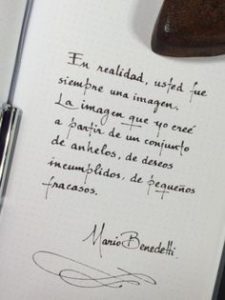 En realidad, usted fue
siempre una imagen.
La imagen que yo creé
a partir de un conjunto
de anhelos, de deseos
incumplidos, de pequeños
fracasos.
Mario Benedetti.